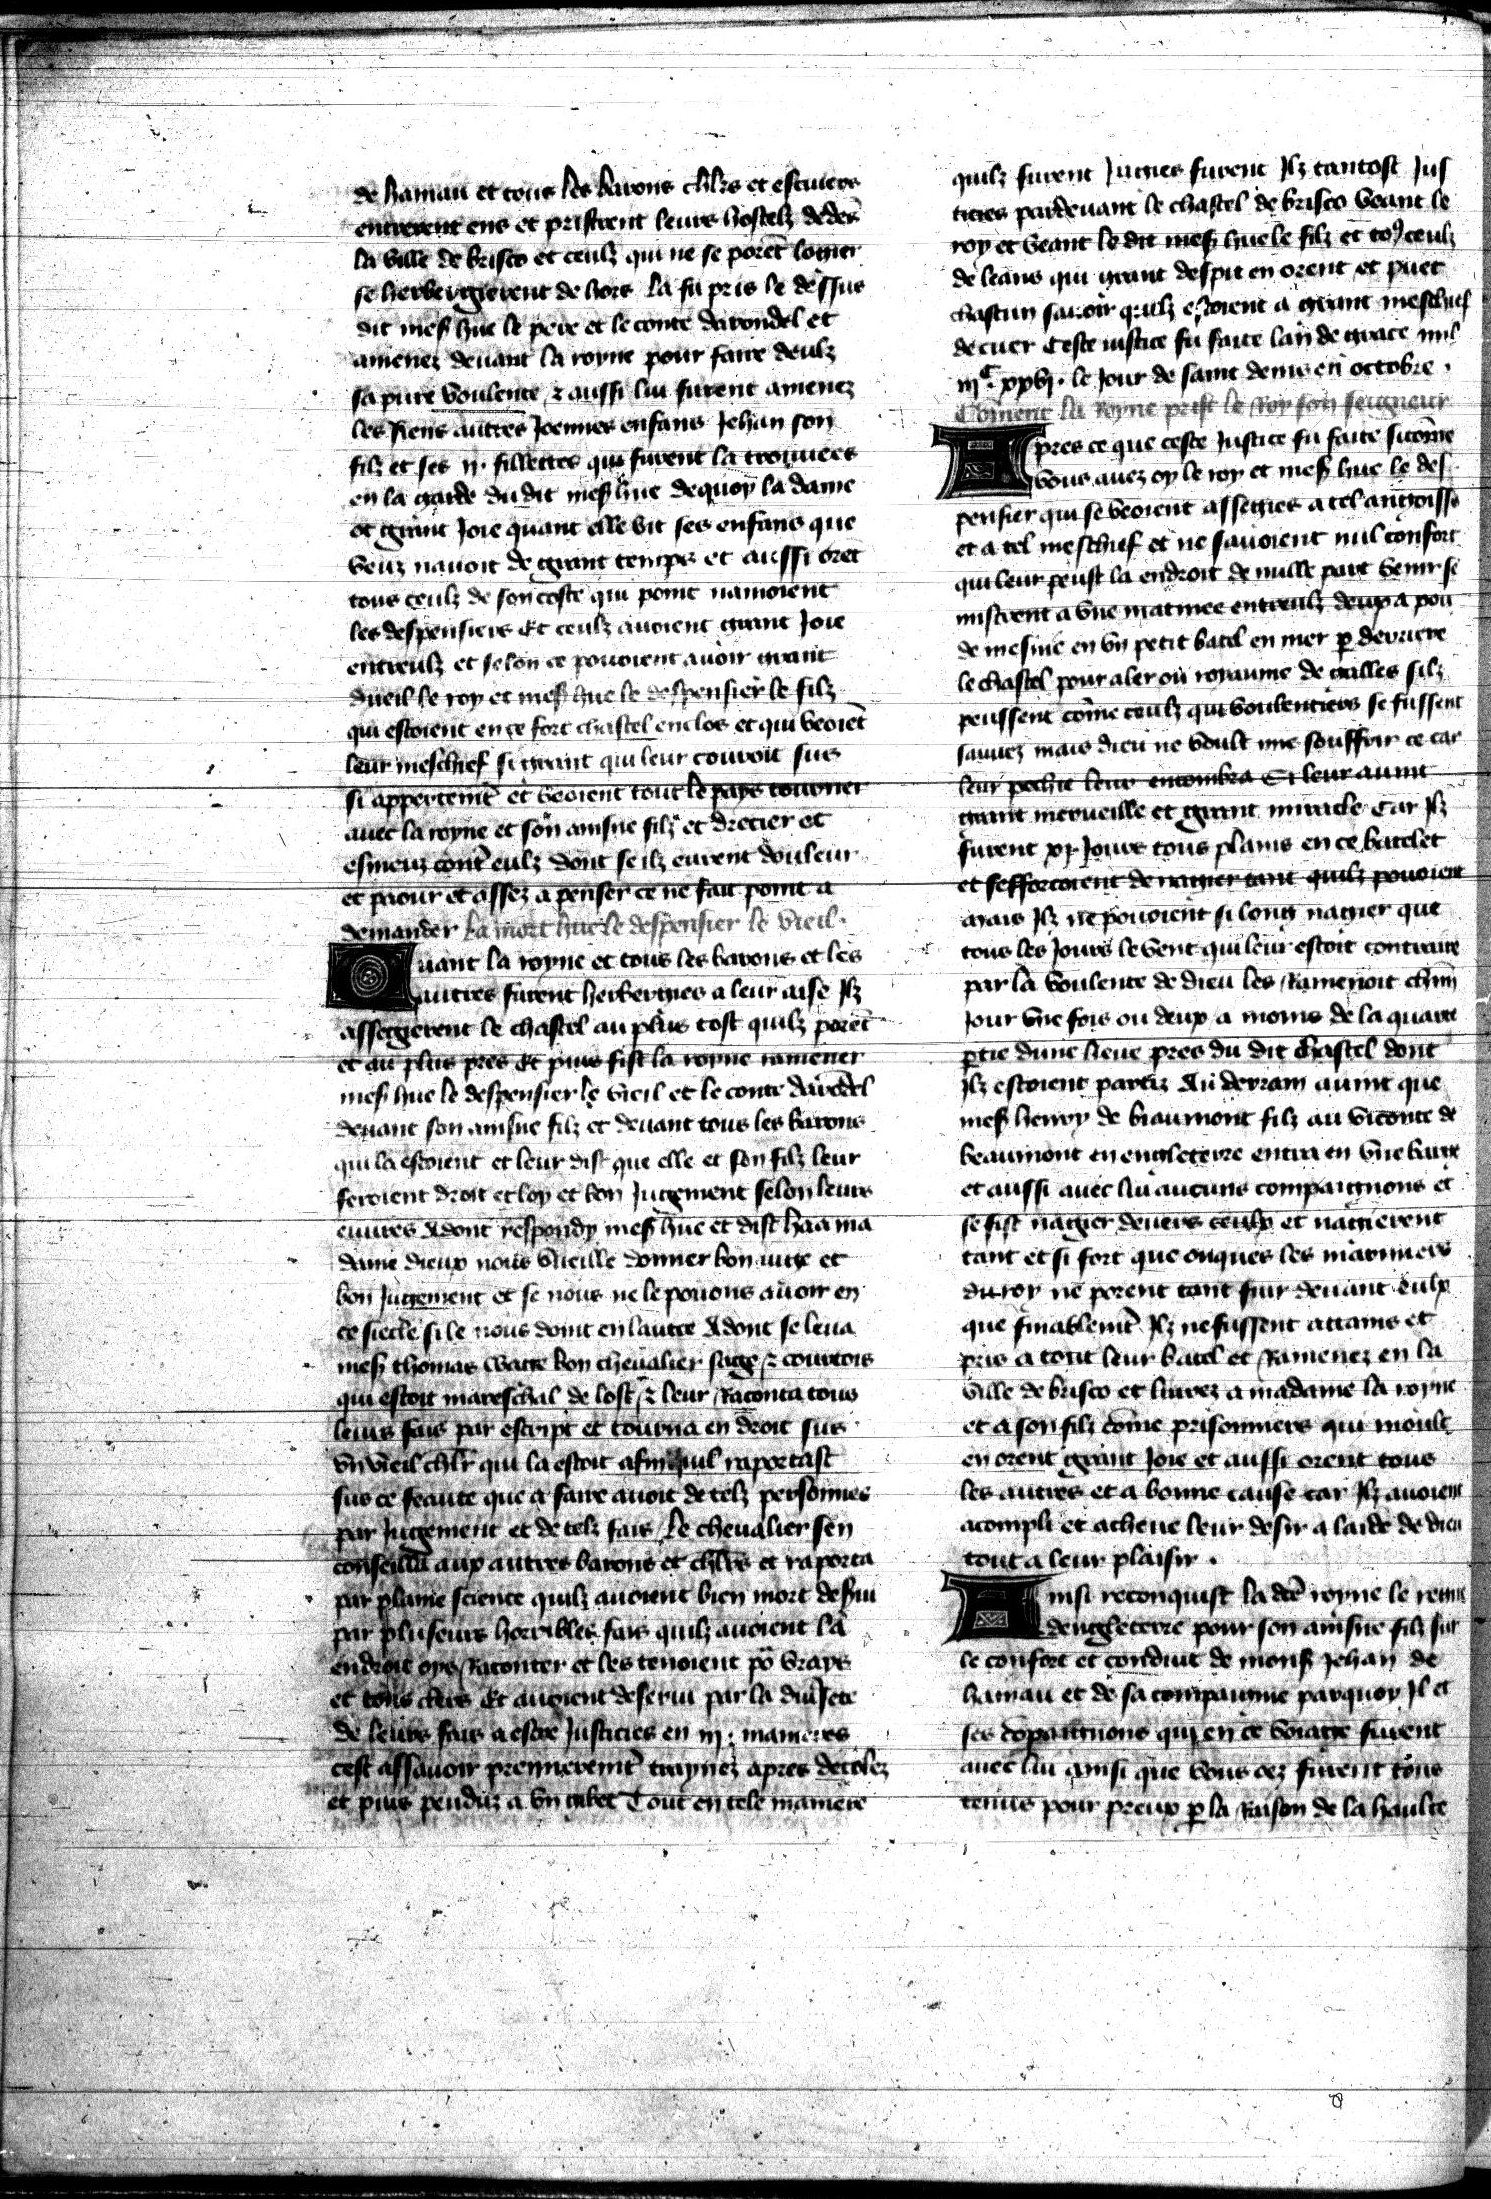 de hainau et tous les barons chlrs et escuiers
entrerent ens et pristrent leurs hostelz dedẽs
la ville de brisco et ceulz qui ne se porẽt logier
se herbergierent de hors la fu pris le dessus
dit mesß hue le pere et le conte darondel et
amenez deuant la royne pour faire deulz
sa pure voulente ⁊ aussi lui furent amenez
les siens autres Joennes enfans Jehan son
filz et ses ij. fillettes qui furent la trouuees
en la garde du dit mesß hue dequoy la dame
ot grant Joie quant elle vit ses enfans que
veuz nauoit de grant temps et aussi orẽt
tous ceulz de son coste qui point namoient
les despensiers Et ceulz auoient grant Joie
entreulz et selon ce pouoient auoir grant
dueil le roy et mesß hue le despensier le filz
qui estoient en ce fort chastel enclos et qui veoiẽt
leur meschief si grant qui leur couroit sus
si appertemẽt et veoient tout le pays tourner
auec la royne et son ainsne filz et drecier et
esmeuz contre eulz dont se ilz eurent douleur
et paour et assez a penser ce ne fait point a
demander La mort hue le despensier le vieil.
Quant la royne et tous les barons et les
autres furent herbergies a leur aise Jlz
assegierent le chastel au plus tost quilz porẽt
et au plus pres Et puis fist la royne ramener
mesß hue le despensier le vieil et le conte darõdel
deuant son ainsne filz et deuant tous les barons
qui la estoient et leur dist que elle et son filz leur
feroient droit et loy et bon Jugement selon leurs
euures Adont respondy mesß hue et dist haa ma
dame dieux nous vueille donner bon iuge et
bon Jugement et se nous ne le pouons auoir en
ce siecle si le nous doint en lautre Adont se leua
mesß thomas wage bon cheualier sage ⁊ courtois
qui estoit mareschal de lost ⁊ leur Raconta tous
leurs fais par escript et tourna en droit sus
vn vieil chlr qui la estoit afin quil raportast
sus ce feaute que a faire auoit de telz personnes
par Jugement et de telz fais Le cheualier sen
conseilla aux autres barons et chlrs et raporta
par plaine science quilz auoient bien mort deserui
par pluseurs horribles fais quilz auoient la
endroit oys Raconter et les tenoient po vrays
et tous clers Et auoient deserui par la diuersete
de leurs fais a estre Justicies en iij. manieres
cest assauoir premieremẽt traynez apres decolez
et puis penduz a vn gibet Tout en tele maniere
quilz furent Jugies furent Jlz tantost Jus
ticies pardeuant le chastel de brisco veant le
roy et veant le dit mesß hue le filz et to9 ceulz
de leans qui grant despit en orent et puet
chascun sauoir quilz estoient a grant meschief
de cuer Ceste iustice fu faite lan de grace mil
iijc. xxvj. le Jour de saint denis en octobre.
Cõment la Royne prist le Roy son seigneur
Apres ce que ceste Justice fu faite si cõme
vous auez oy le roy et mesß hue le des
pensier qui se veoient assegies a tel angoisse
et a tel meschief et ne sauoient nul confort
qui leur peust la endroit de nulle part venir se
mistrent a vne matinee entreulz deux a pou
de mesnie en vn petit batel en mer p derriere
le chastel pour aler ou royaume de galles silz
peussent cõme ceulz qui voulentiers se fussent
sauuez mais dieu ne voult mie souffrir ce car
leur pechie leur encombra Et leur auint
grant merueille et grant miracle Car Jlz
furent xj Jours tous plains en ce batelet
et sefforcoient de nagier tant quilz pouoient
mais Jlz ne pouoient si long nagier que
tous les Jours le vent qui leur estoit contraire
par la voulente de dieu les Ramenoit chũn
Jour vne fois ou deux a moins de la quarte
ptie dune lieue pres du dit chastel dont
Jlz estoient partiz Au derrain auint que
mesß henry de biaumont filz au viconte de
beaumont en engleterre entra en vne barge
et aussi auec lui aucuns compaignons et
se fist nagier deuers ceulx et nagierent
tant et si fort que onques les mariniers
du roy ne porent tant fuir deuant eulx
que finablemẽt Jlz ne fussent attains et
pris a tout leur batel et Ramenez en la
ville de brisco et liurez a madame la royne
et a son filz cõme prisonniers qui moult
en orent grant Joie et aussi orent tous
les autres et a bonne cause car Jlz auoient
acompli et acheue leur desir a laide de dieu
tout a leur plaisir.
Ainsi reconquist la dcẽ royne le regne
dengleterre pour son ainsne filz sur
le confort et conduit de monsß Jehan de
hainau et de sa compaignie parquoy Jl et
ses cõpaignons qui en ce voiage furent
auec lui ainsi que vous oez furent tous
tenus pour preux p la Raison de la haulte